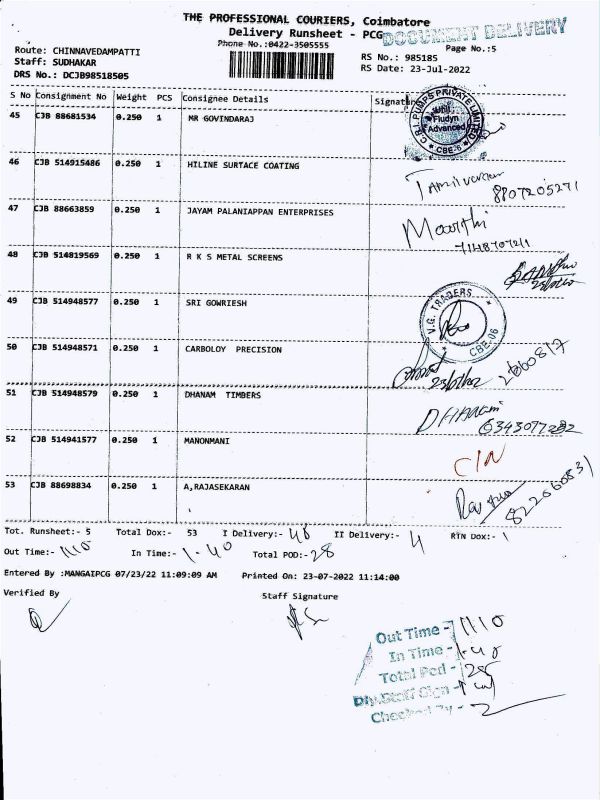 THE PROFESSIONAL COURIERS, Coimbatore
Delivery Runsheet - PCG
DOCUMENT DELIVERY
Phone No.:0422-3505555
Page No.:5
Route: CHINNAVEDAMPATTI
RS No.: 985185
Staff: SUDHAKAR
RS Date: 23-Jul-2022
DRS No.: DCJB98518505
S No Consignment No Weight PCS Consignee Details Signature
45 CJB 88681534 0.250 1 MR GOVINDARAJ
C.R.I. PUMPS PRIVATE LIMITED
Unit
Fludyn
Advanced
CBE-6
46 CJB 514915486 0.250 1 HILINE SURTACE COATING
8807205271
47 CJB 88663859 0.250 1 JAYAM PALANIAPPAN ENTERPRISES
Moorthi
48 CJB 514819569 0.250 1 R K S METAL SCREENS
49 CJB 514948577 0.250 1 SRI GOWRIESH
V.G. TRADERS
CBE-06
50 CJB 514948571 0.250 1 CARBOLOY PRECISION
51 CJB 514948579 0.250 1 DHANAM TIMBERS
52 CJB 514941577 0.250 1 MANONMANI
53 CJB 88698834 0.250 1 A,RAJASEKARAN
Tot. Runsheet:- 5 Total Dox:- 53 I Delivery:- 48 II Delivery:- 4 RTN Dox:- 1
Out Time:- 1110 In Time:- 1-40 Total POD:- 28
Entered By :MANGAIPCG 07/23/22 11:09:09 AM Printed On: 23-07-2022 11:14:00
Verified By Staff Signature
Out Time - 1110
In Time - 1-40
Total Pod - 28
Dly.Staff Sign -
Checked By -